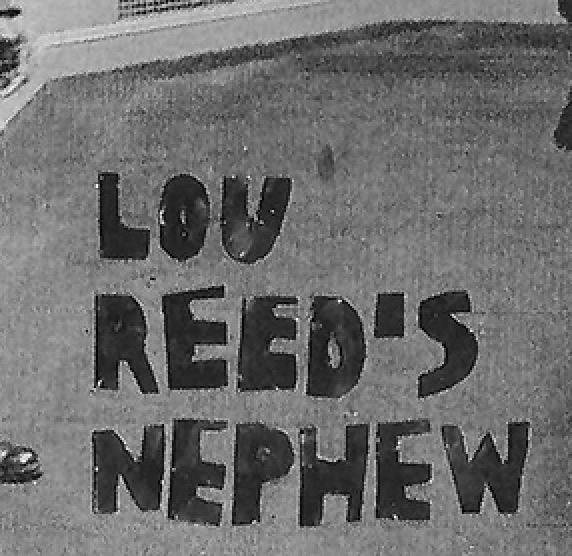 LOU
REED'S
NEPHEW